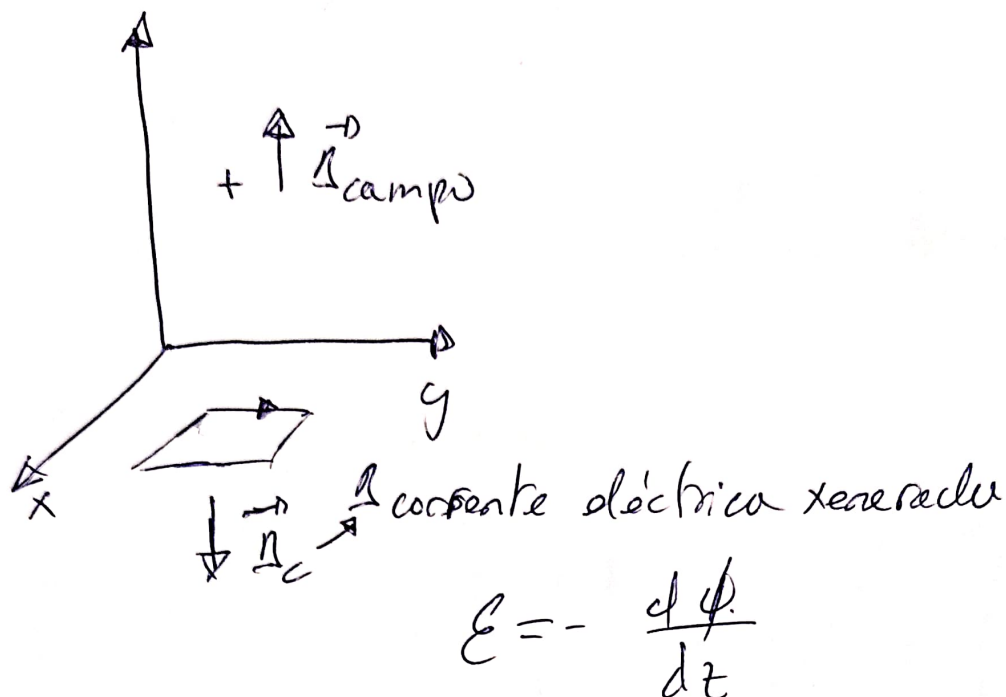 + B⃗campo
y
x
B⃗c B corrente eléctrica xenerada
ε = - dϕ/dt